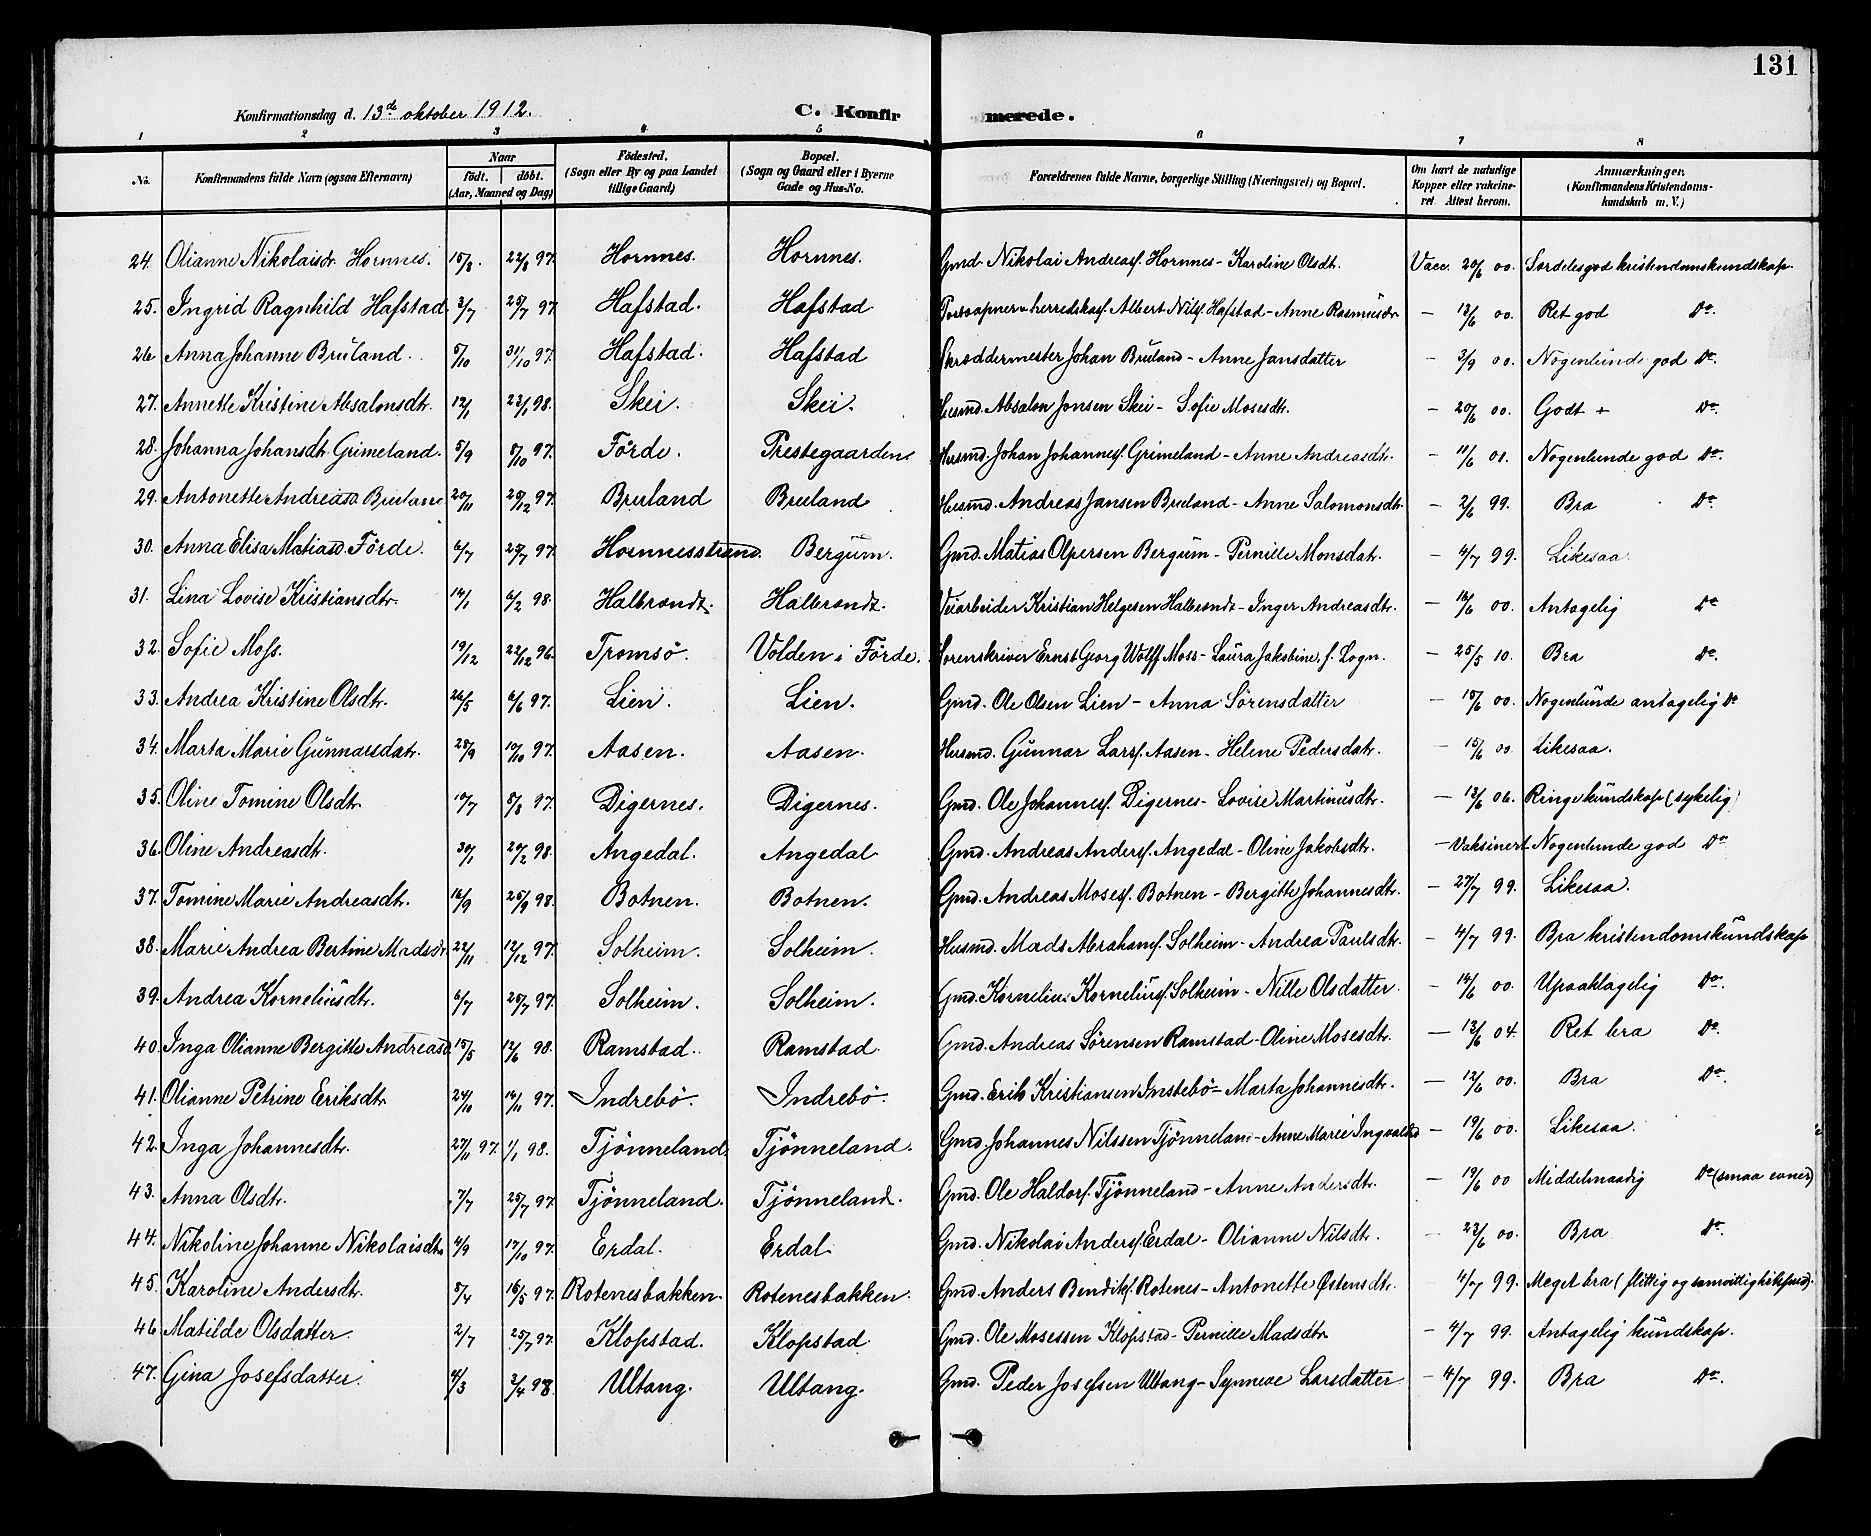 131
Konfirmationsdag d. 13de oktober 1912. C. Konfir merede.
1 2 3 4 5 6 7 8
No. Konfirmandens fulde Navn (ogsaa Efternavn) Naar født. døbt. (Aar, Maaned og Dag) Fødested. (Sogn eller By og paa Landet tillige Gaard) Bopæl. (Sogn og Gaard eller i Byerne Gade og Hus-No. Forældrenes fulde Navne, borgerlige Stilling (Næringsvei) og Bopæl. Om havt de naturlige Kopper eller vakcineret. Attest herom. Anmærkninger. (Konfirmandens Kristendomskundskab m. V.)
24. Olianne Nikolaisdr. Hornnes. 15/8. 22/8 97. Hornnes. Hornnes. Gmd. Nikolai Andreasf. Hornnes - Karoline Olsdt. Vacc. 20/6 00. Særdeles god kristendomskundskap.
25. Ingrid Ragnhild Hafstad. 3/7 25/7 97. Hafstad. Hafstad Postaapner u. herredskas. Albert Nilsf. Hafstad - Anne Rasmusdr. - 13/6 00. Ret god Do.
26 Anna Johanne Bruland. 5/10 31/10 97. Hafstad. Hafstad Garvermester Johan Bruland - Anne Jansdatter - 3/9 00. Nogenlunde god Do.
27. Annette Kristine Absalonsdtr. 12/1 23/1 98. Skei. Skei. Husmd. Absalon Jonsen Skei - Sofie Mosesdtr. - 20/6 00. Godt + Do.
28. Johanna Johansdt. Grimeland. 5/9 8/10 97. Förde. Prestegaardens Husmd. Johan Johannesf. Grimeland - Anne Andreasdtr. - 11/6 01. Nogenlunde god Do.
29. Antonette Andreasd. Bruland 20/11 25/12 97. Bruland Bruland Husmd. Andreas Jansen Bruland - Anne Salomonsdtr. - 2/6 99. Bra Do.
30. Anna Elisa Matiasd. Förde. 6/7 25/7 97. Hornnesstrand. Bergum. Gmd. Matias Olpersen Bergum - Pernille Monsdatr. - 4/7 99. Likesaa.
31. Lina Lovise Kristiansdtr. 14/1 6/2 98. Halbrandt. Halbrandt. Veiarbeider Kristian Helgesen Halbrandt - Inger Andreasdtr. - 16/6 00. Antagelig Do
32. Sofie Moss. 19/12 22/12 96. Tromsö. Volden i Förde. Sorenskriver Ernst Georg Wolff Moss - Laura Jakobine, f. Logn. - 25/5 10. Bra Do.
33. Andrea Kristine Olsdtr. 26/5 6/6 97. Lien. Lien. Gmd. Ole Olsen Lien - Anna Sörensdatter - 15/6 00. Nogenlunde antagelig Do
34. Marta Marie Gunnarsdatr. 28/9 10/10 97. Aasen. Aasen. Husmd. Gunnar Larsf. Aasen - Helene Pedersdatr. - 15/6 00 Likesaa.
35. Oline Tomine Olsdtr. 10/7 8/8 97. Digernes. Digernes. Gmd. Ole Johannesf. Digernes - Lovise Martinusdtr. - 13/6 06. Ringe kundskap (sykelig)
36. Oline Andreasdtr. 30/1 20/2 98. Angedal. Angedal Gmd. Andreas Andersf. Angedal - Oline Jakobsdtr. - Vaksinert Nogenlunde god Do
37. Tomine Marie Andreasdtr. 16/9 25/9 98. Botnen. Botnen. Gmd. Andreas Mosesf. Botnen - Bergitte Johannesdtr. - 27/7 99. Likesaa.
38. Marie Andrea Bertine Madsdtr. 22/11 12/12 97. Solheim. Solheim. Husmd. Mads Abrahamf. Solheim - Andrea Paulsdtr. - 4/7 99. Bra kristendomskundskap
39. Andrea Korneliusdtr. 6/7 25/7 97. Solheim. Solheim. Gmd. Kornelius Korneliusf. Solheim - Nille Olsdatter - 14/6 00. Upaaklagelig Do.
40. Inga Olianne Bergitte Andreasd. 15/5 12/6 98. Ramstad. Ramstad. Gmd. Andreas Sörensen Ramstad - Oline Mosesdtr. - 13/6 04. Ret bra Do.
41. Olianne Petrine Eriksdtr 24/10 14/11 97. Indrebö. Indrebö. Gmd. Erik Kristiansen Instebö - Marta Johannesdtr. - 12/6 00. Bra Do.
42. Inga Johannesdtr. 27/11 97. 1/1 98. Tjönneland. Tjönneland. Gmd. Johannes Nilssen Tjönneland - Anne Marie Ingvaldsd - 19/6 00. Likesaa.
43. Anna Olsdtr. 7/7 25/7 97. Tjönneland. Tjönneland. Gmd. Ole Haldorf. Tjönneland - Anne Andersdtr. - 19/6 00 Middelmaadig Do (smaa evner)
44. Nikoline Johanne Nikolaisdtr. 4/9 17/10 97. Erdal. Erdal Gmd. Nikolai Andersf. Erdal - Olianne Nilsdtr. - 23/6 00. Bra Do.
45. Karoline Andersdtr. 5/4 16/5 97. Rotenesbakken. Rotenesbakken. Gmd. Anders Bendiksf. Rotenes - Antonette Östensdtr. 4/7 99. Meget bra (flittig og samvittighetsfuld).
46. Matilde Olsdatter. 2/7 25/7 97. Klopstad. Klopstad Gmd. Ole Mosessen Klopstad - Pernille Madsdtr - 4/7 99. Antagelig kundskap.
47. Gina Josefsdatter. 4/3 3/4 98. Ultang. Ultang. Gmd. Peder Josefsen Ultang - Synneve Larsdatter - 4/7 99. Bra Do.